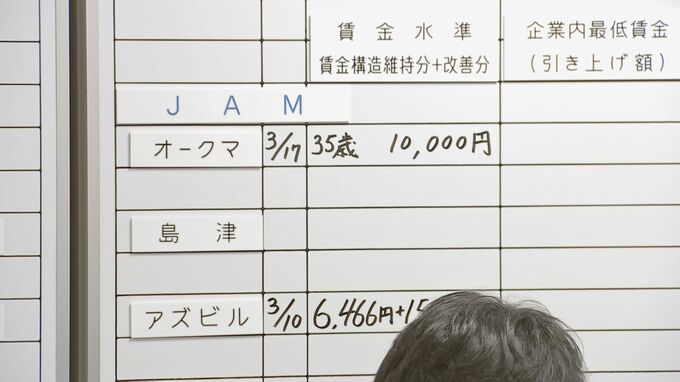 賃金水準
賃金構造維持分+改善分
企業内最低賃金
(引き上げ額)
JAM
オークマ 3/17 35歳 10,000円
島津
アズビル 3/10 6,466円+15